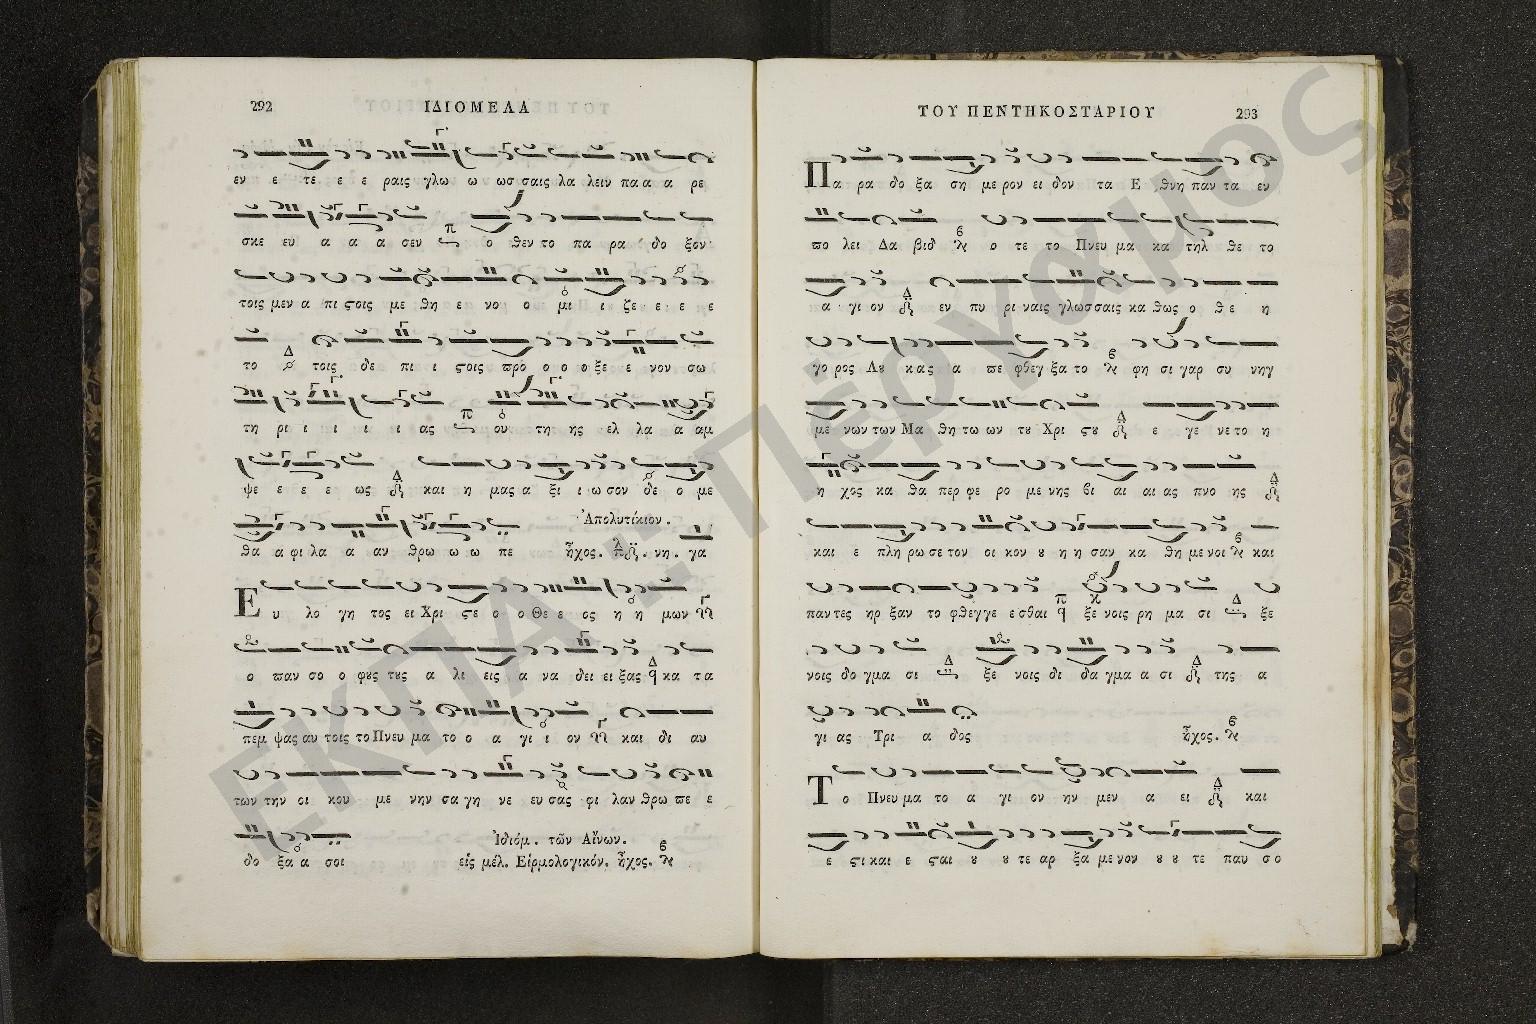 292 ΙΔΙΟΜΕΛΑ
εν ε τε ε ε ραις γλω ω ωσ σαις λα λειν πα α α ρε
σκε ευ α α α σεν π ο θεν το πα ρα δο ξον
τοις μεν α πι ϛοις με θη ε νο ο μι ι ζε ε ε ε
το Δ τοις δε πι ι ϛοις προ ο ο ο ξε ε νον σω
τη ρι ι ι ι ι ας π ου τη ης ελ λα α αμ
ψε ε ε ε ως Δ και η μας α ξι ι ω σον δε ο με
Ἀπολυτίκιον.
θα α φι λα α αν θρω ω ω πε ἦχος. νη. γα
Ε υ λο γη τος ει Χρι ϛε ο ο Θε ε ος η η μων
ο παν σο ο φȣς τȣς α λι εις α να δει ει ξας Δ κα τα
πεμ ψας αυ τοις το Πνευ μα το ο α γι ι ον και δι αυ
των την οι κου με νην σα γη νε ευ σας φι λαν θρω πε ε
δο ξα α σοι
Ἰδιόμ. τῶν Αἴνων.
εἰς μέλ. Εἱρμολογικόν. ἦχος.
ΤΟΥ ΠΕΝΤΗΚΟΣΤΑΡΙΟΥ 293
Πα ρα δο ξα ση με ρον ει δον τα Ε θνη παν τα εν
πο λει Δα βιδ ο τε το Πνευ μα κα τηλ θε το
α γι ον Δ εν πυ ρι ναις γλωσσαις κα θως ο θε η
γο ρος Λȣ κα ς α πε φθεγ ξα το φη σι γαρ συ νηγ
με νων των Μα θη τω ων τȣ Χρι ϛȣ Δ ε γε νε το η
η χος κα θα περ φε ρο με νης βι αι αι ας πνο ης Δ
και ε πλη ρω σε τον οι κον ȣ η η σαν κα θη με νοι και
παντες ηρ ξαν το φθεγγε ε σθαι π ξε νοις ρη μα σι Δ ξε
νοις δο γμα σι Δ ξε νοις δι δα γμα α σι Δ της α
γι ας Τρι α δος ἦχος.
Τ ο Πνευ μα το α γι ον ην μεν α ει Δ και
ε ϛι και ε ϛαι ȣ ȣ τε αρ ξα με νον ȣ ȣ τε παυ σο
ΕΚΠΑ - Πέργαμος